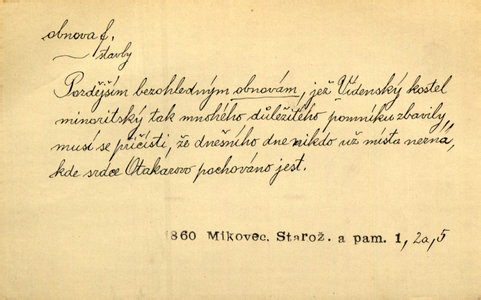 obnova f.
stavby
Pozdějším bezohledným obnovám, jež Vídenský kostel
minoritský tak mnohého důležitého pomníku zbavily,
musí se přičísti, že dnešního dne nikdo už místa nezná,
kde srdce Otakarovo pochováno jest.
1860 Mikovec, Starož. a pam. 1, 2a, 5